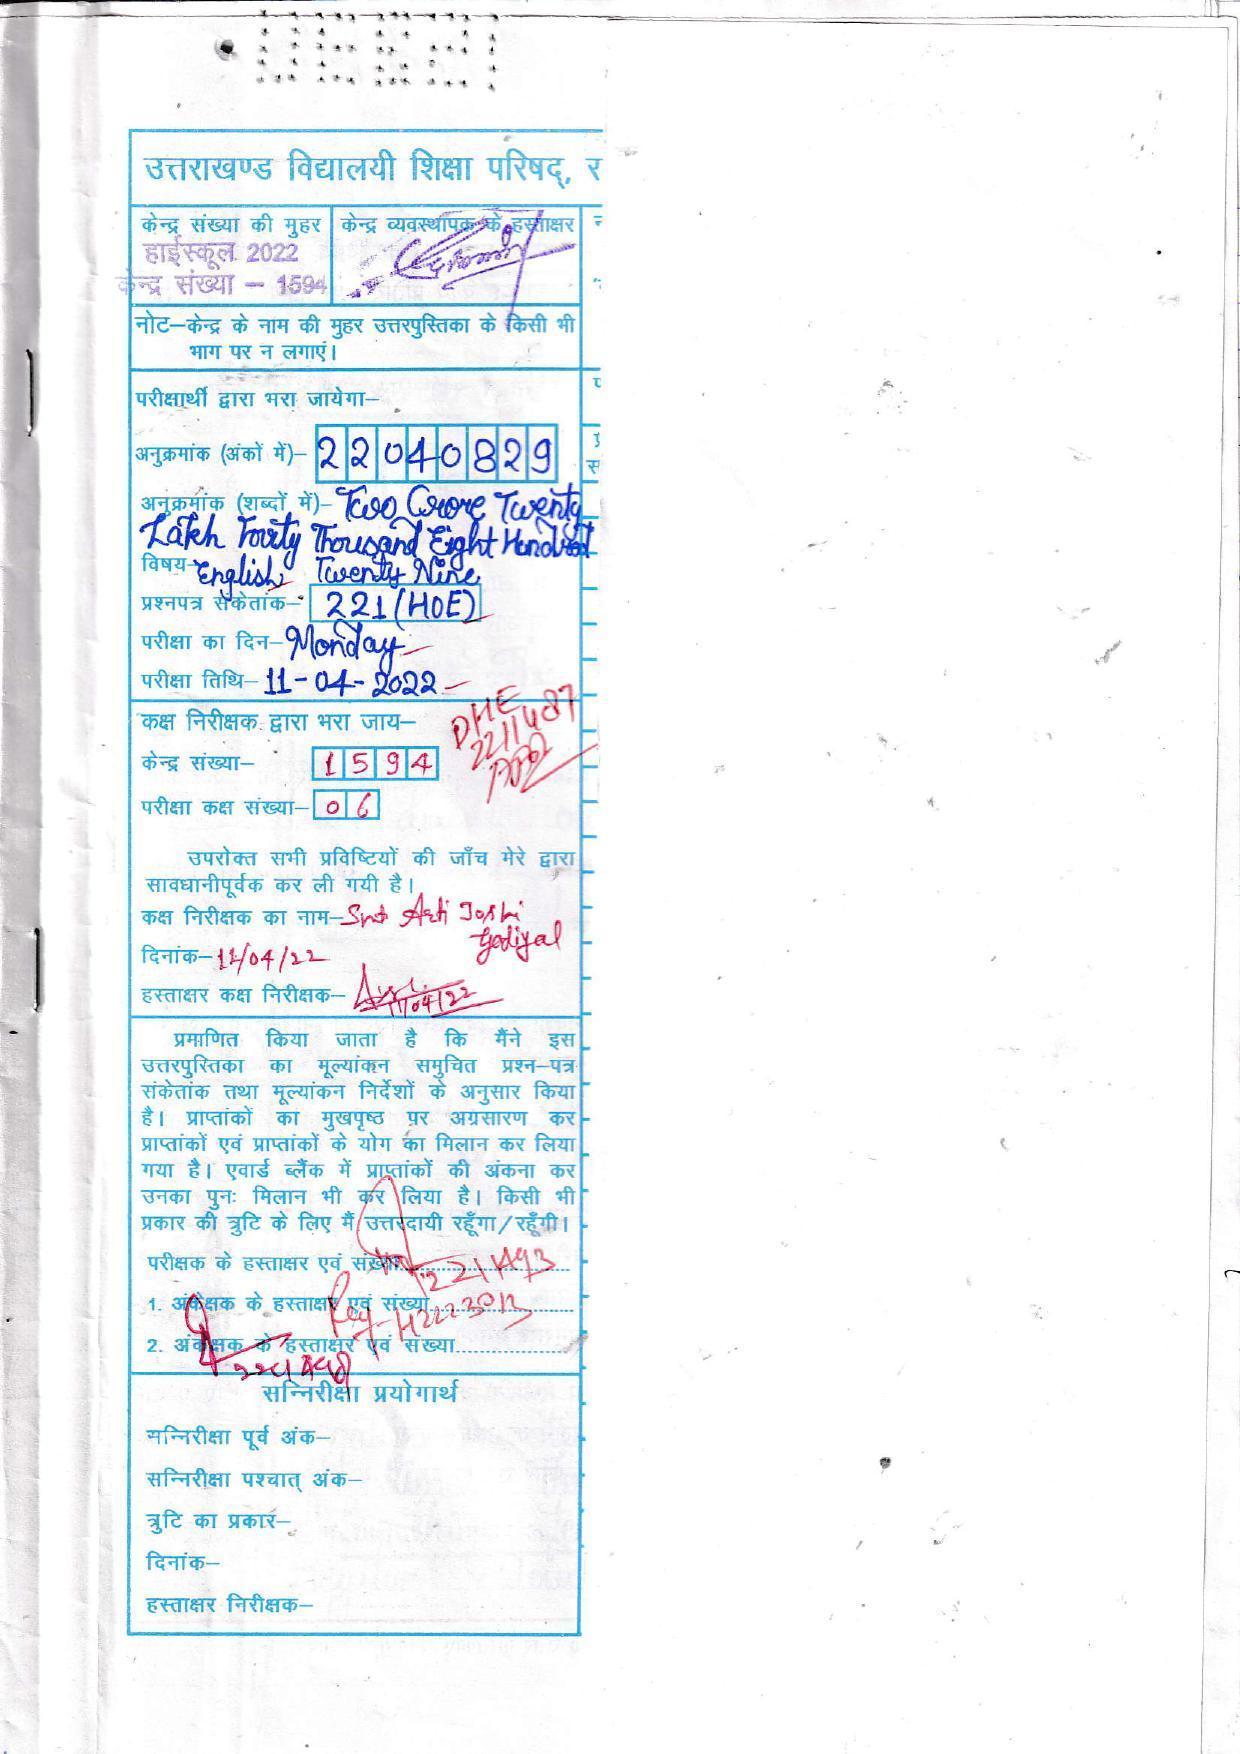 उत्तराखण्ड विद्यालयी शिक्षा परिषद्, र
केन्द्र संख्या की मुहर
हाईस्कूल 2022
केन्द्र संख्या – 1594
केन्द्र व्यवस्थापक के हस्ताक्षर
नोट–केन्द्र के नाम की मुहर उत्तरपुस्तिका के किसी भी
भाग पर न लगाएं।
परीक्षार्थी द्वारा भरा जायेगा–
अनुक्रमांक (अंकों में)– 22040829
अनुक्रमांक (शब्दों में)– Two Crore Twenty
Lakh Fourty Thousand Eight Hundred
विषय– English Twenty Nine
प्रश्नपत्र संकेतांक– 221(HOE)
परीक्षा का दिन– Monday
परीक्षा तिथि– 11-04-2022
कक्ष निरीक्षक द्वारा भरा जाय–
केन्द्र संख्या– 1594
परीक्षा कक्ष संख्या– 06
उपरोक्त सभी प्रविष्टियों की जाँच मेरे द्वारा
सावधानीपूर्वक कर ली गयी है।
कक्ष निरीक्षक का नाम– Smt Arti Joshi
Godiyal
दिनांक– 11/04/22
हस्ताक्षर कक्ष निरीक्षक– 11/04/22
प्रमाणित किया जाता है कि मैंने इस
उत्तरपुस्तिका का मूल्यांकन समुचित प्रश्न–पत्र
संकेतांक तथा मूल्यांकन निर्देशों के अनुसार किया
है। प्राप्तांकों का मुखपृष्ठ पर अग्रसारण कर
प्राप्तांकों एवं प्राप्तांकों के योग का मिलान कर लिया
गया है। एवार्ड ब्लैंक में प्राप्तांकों की अंकना कर
उनका पुनः मिलान भी कर लिया है। किसी भी
प्रकार की त्रुटि के लिए मैं उत्तरदायी रहूँगा/रहूँगी।
परीक्षक के हस्ताक्षर एवं संख्या
1. अंकेक्षक के हस्ताक्षर एवं संख्या
2. अंकेक्षक के हस्ताक्षर एवं संख्या
सन्निरीक्षा प्रयोगार्थ
सन्निरीक्षा पूर्व अंक–
सन्निरीक्षा पश्चात् अंक–
त्रुटि का प्रकार–
दिनांक–
हस्ताक्षर निरीक्षक–